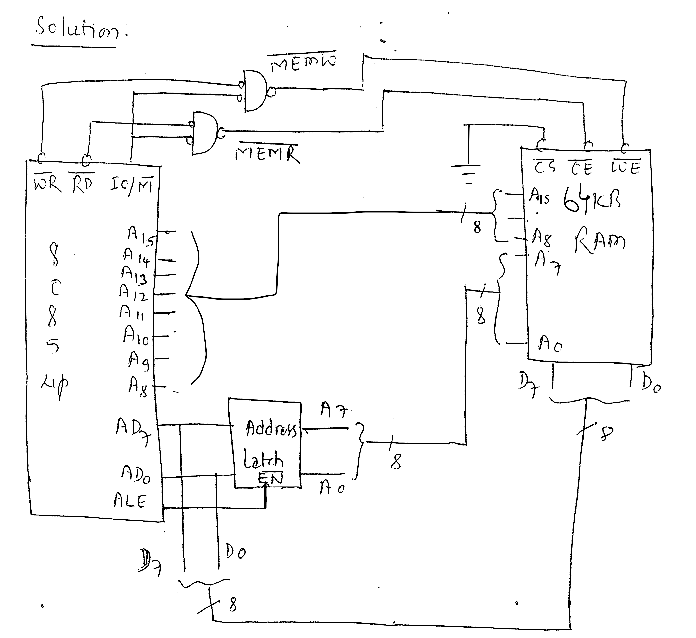 Solution.
MEMW
MEMR
WR RD IO/M
8
0
8
5
μp
A15
A14
A13
A12
A11
A10
A9
A8
AD7
AD0
ALE
Address
Latch
EN
A7
A0
8
D7 D0
8
CS CE WE
A15 64KB
A8 RAM
A7
A0
8
8
D7 D0
8